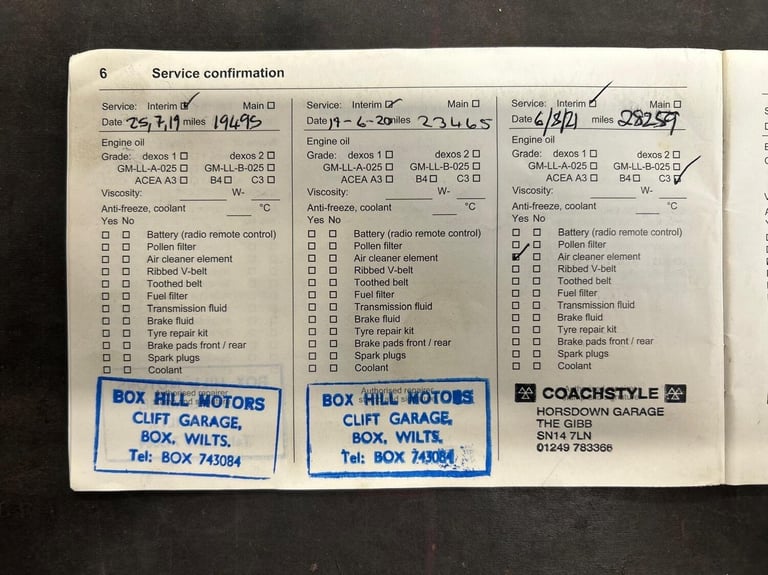 6 Service confirmation
Service: Interim ☑ Main ☐
Date 25,7,19 miles 19495
Engine oil
Grade: dexos 1 ☐ dexos 2 ☐
GM-LL-A-025 ☐ GM-LL-B-025 ☐
ACEA A3 ☐ B4 ☐ C3 ☐
Viscosity: W-
Anti-freeze, coolant °C
Yes No
☐ ☐ Battery (radio remote control)
☐ ☐ Pollen filter
☐ ☐ Air cleaner element
☐ ☐ Ribbed V-belt
☐ ☐ Toothed belt
☐ ☐ Fuel filter
☐ ☐ Transmission fluid
☐ ☐ Brake fluid
☐ ☐ Tyre repair kit
☐ ☐ Brake pads front / rear
☐ ☐ Spark plugs
☐ ☐ Coolant
Authorised repairer
BOX HILL MOTORS
CLIFT GARAGE,
BOX, WILTS.
Tel: BOX 743084
Service: Interim ☑ Main ☐
Date 19-6-20 miles 23465
Engine oil
Grade: dexos 1 ☐ dexos 2 ☐
GM-LL-A-025 ☐ GM-LL-B-025 ☐
ACEA A3 ☐ B4 ☐ C3 ☐
Viscosity: W-
Anti-freeze, coolant °C
Yes No
☐ ☐ Battery (radio remote control)
☐ ☐ Pollen filter
☐ ☐ Air cleaner element
☐ ☐ Ribbed V-belt
☐ ☐ Toothed belt
☐ ☐ Fuel filter
☐ ☐ Transmission fluid
☐ ☐ Brake fluid
☐ ☐ Tyre repair kit
☐ ☐ Brake pads front / rear
☐ ☐ Spark plugs
☐ ☐ Coolant
Authorised repairer
BOX HILL MOTORS
CLIFT GARAGE,
BOX, WILTS.
Tel: BOX 743084
Service: Interim ☑ Main ☐
Date 6/8/21 miles 28259
Engine oil
Grade: dexos 1 ☐ dexos 2 ☐
GM-LL-A-025 ☐ GM-LL-B-025 ☐
ACEA A3 ☐ B4 ☐ C3 ☑
Viscosity: W-
Anti-freeze, coolant °C
Yes No
☐ ☐ Battery (radio remote control)
☐ ☐ Pollen filter
☑ ☐ Air cleaner element
☐ ☐ Ribbed V-belt
☐ ☐ Toothed belt
☐ ☐ Fuel filter
☐ ☐ Transmission fluid
☐ ☐ Brake fluid
☐ ☐ Tyre repair kit
☐ ☐ Brake pads front / rear
☐ ☐ Spark plugs
☐ ☐ Coolant
COACHSTYLE
HORSDOWN GARAGE
THE GIBB
SN14 7LN
01249 783366